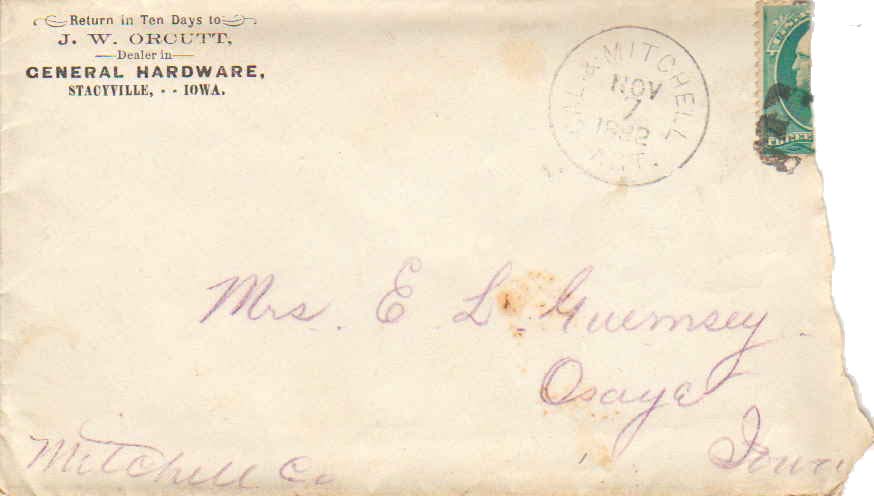 Return in Ten Days to
J. W. ORCUTT,
Dealer in
GENERAL HARDWARE,
STACYVILLE, - - IOWA.
CAL. & MITCHELL
NOV
7
1882
Mrs. E L. Guernsey
Osage
Iowa
Mitchell Co